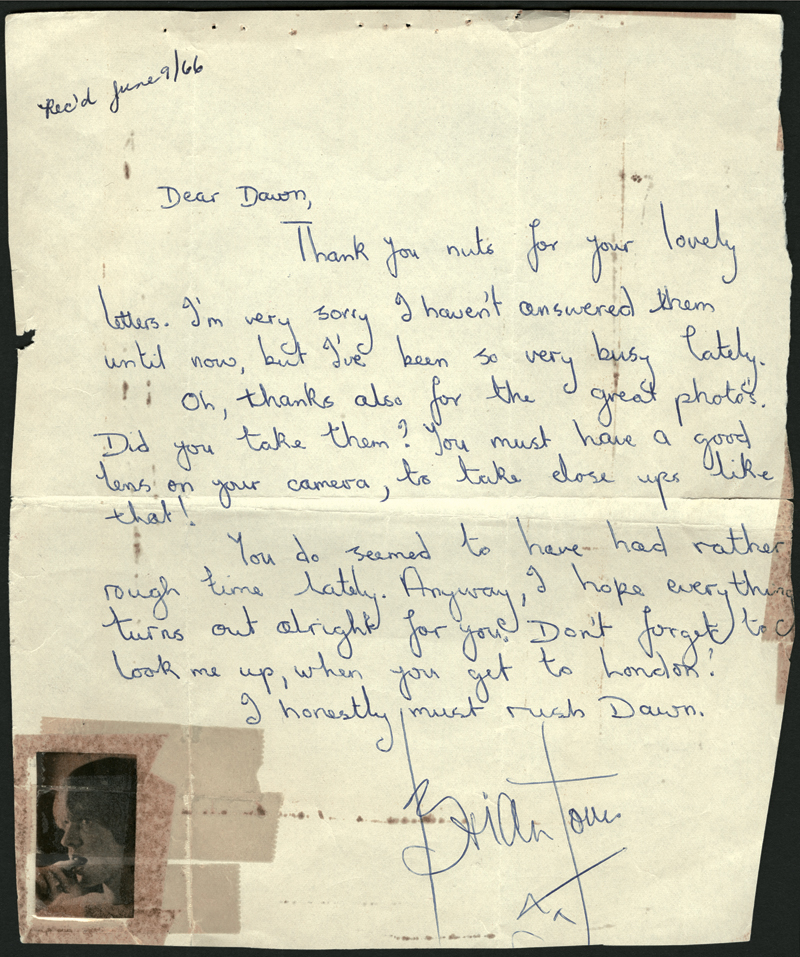 Rec'd June 9/66
Dear Dawn,
Thank you nuts for your lovely
letters. I'm very sorry I haven't answered them
until now, but I've been so very busy lately.
Oh, thanks also for the great photo's.
Did you take them? You must have a good
lens on your camera, to take close ups like
that!
You do seemed to have had rather
rough time lately. Anyway, I hope everything
turns out alright for you? Don't forget to
look me up, when you get to London!
I honestly must rush Dawn.
Brian Jones